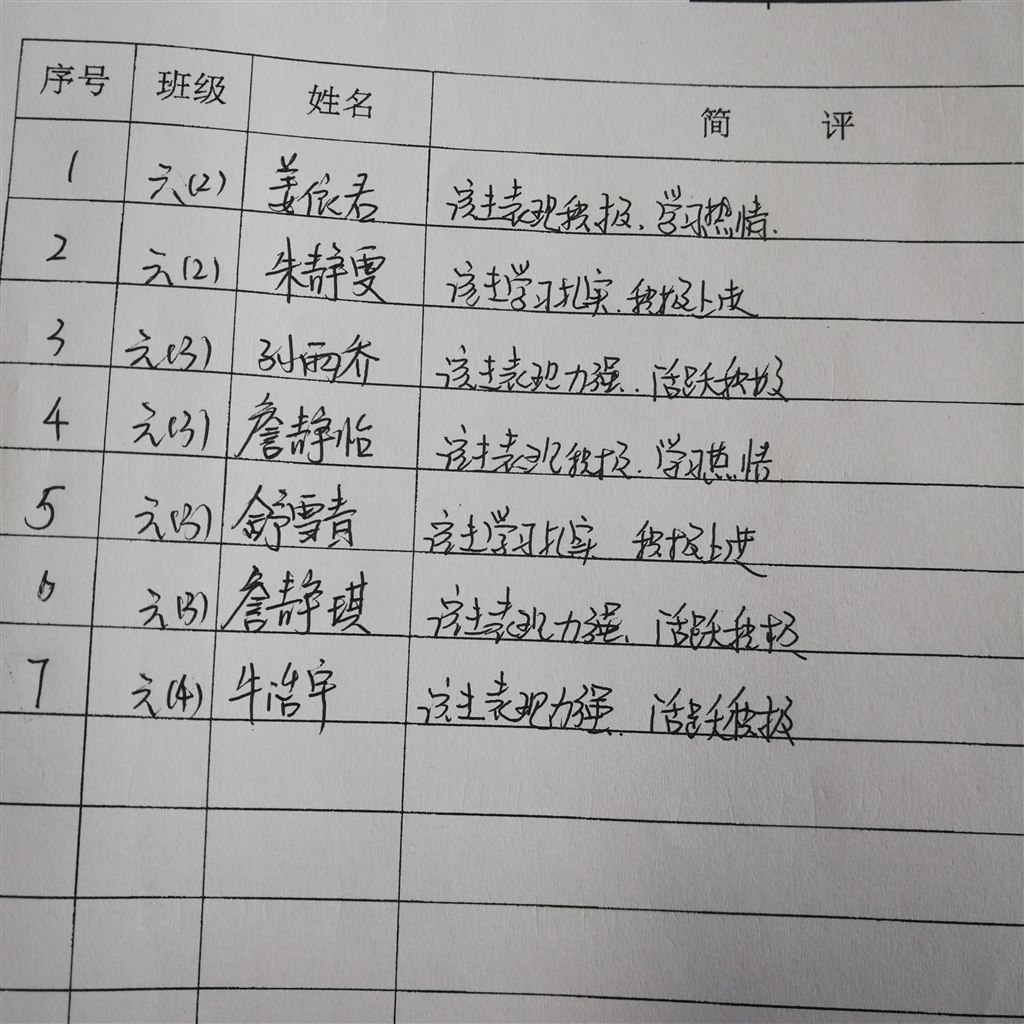 序号 班级 姓名 简评
1 六(2) 姜依君 该生表现积极、学习热情.
2 六(2) 朱静雯 该生学习扎实.积极上进
3 六(3) 孙雨乔 该生表现力强.活跃积极
4 六(3) 詹静怡 该生表现积极.学习热情
5 六(3) 舒雪青 该生学习扎实 积极上进
6 六(3) 詹静琪 该生表现力强、活跃积极
7 六(4) 牛浩宇 该生表现力强.活跃积极